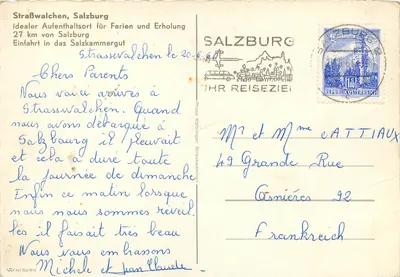 Straßwalchen, Salzburg
Idealer Aufenthaltsort für Ferien und Erholung
27 km von Salzburg
Einfahrt in das Salzkammergut
Strasswalchen le 20-6-6
Chers Parents
Nous voici arrivés à
Strasswalchen. Quand
nous avons débarqué à
Salzbourg il pleuvait
et cela a duré toute
la journée de dimanche
Enfin ce matin lorsque
nous nous sommes réveil
lés il faisait très beau
Nous vous embrassons
Michèle et Jean Claude
SALZBURG
IHR REISEZIEL
SALZBURG 2
Mr et Mme CATTIAUX
49 Grande Rue
92
Frankreich